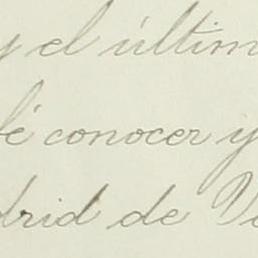 y el últim
fé conocer y
drid de V